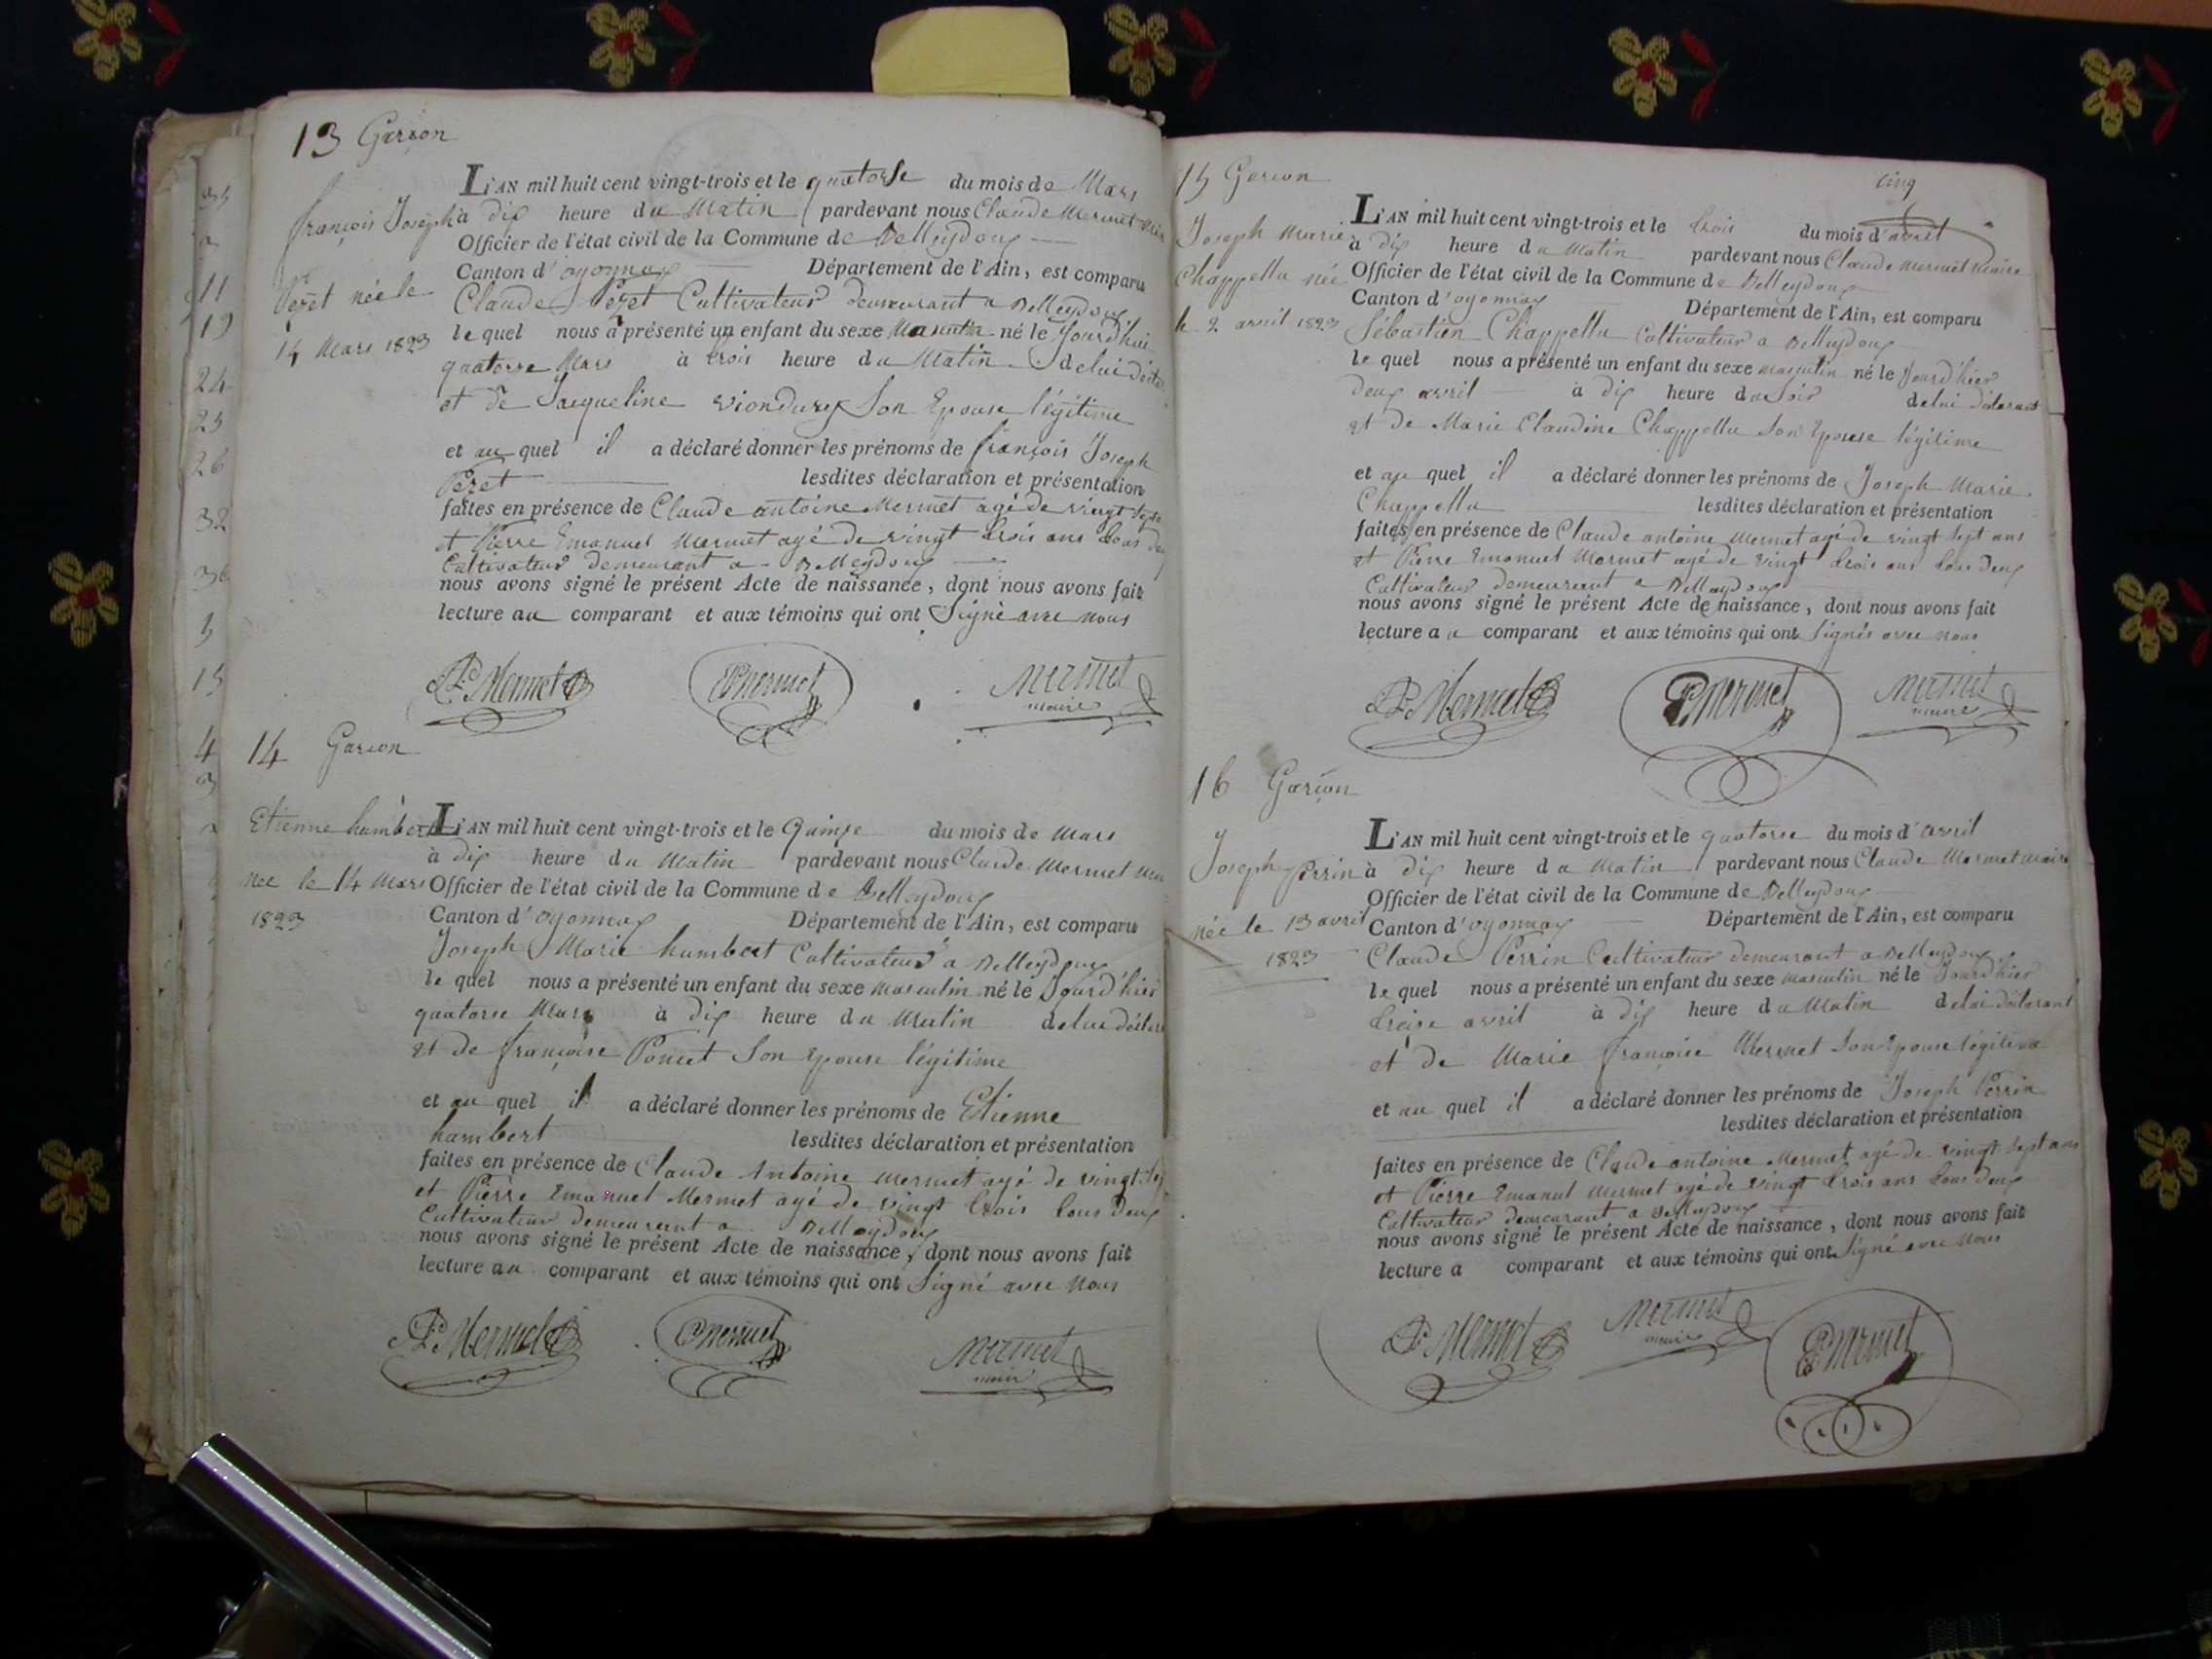 13 Garçon
L'AN mil huit cent vingt-trois et le quatorse du mois de Mars
françois Joseph à dix heure du Matin pardevant nous Claude Mermet
Officier de l'état civil de la Commune de Belleydoux
Canton d'oyonnax Département de l'Ain, est comparu
Pezet née le
Claude Pezet Cultivateur demeurant a Belleydoux
14 Mars 1823
le quel nous a présenté un enfant du sexe Masculin né le Jourd'hui
quatorse Mars à trois heure du Matin de lui
et de Jacqueline viondurey Son Epouse légitime
et au quel il a déclaré donner les prénoms de françois Joseph
Pezet lesdites déclaration et présentation
faites en présence de Claude antoine Mermet agé de vingt
et Pierre Emanuel Mermet agé de vingt trois ans tous deux
Cultivateur demeurant a Belleydoux
nous avons signé le présent Acte de naissance, dont nous avons fait
lecture au comparant et aux témoins qui ont Signé avec nous
Mermet
Mermet
Mermet
maire
14 Garçon
Etienne humbert
L'AN mil huit cent vingt-trois et le Quinze du mois de Mars
à dix heure du Matin pardevant nous Claude Mermet
née le 14 Mars
Officier de l'état civil de la Commune de Belleydoux
1823
Canton d'oyonnax Département de l'Ain, est comparu
Joseph Marie humbert Cultivateur a Belleydoux
le quel nous a présenté un enfant du sexe masculin né le Jourd'hier
quatorse Mars à dix heure du Matin de lui
et de françoise Poncet Son Epouse légitime
et au quel il a déclaré donner les prénoms de Etienne
humbert lesdites déclaration et présentation
faites en présence de Claude Antoine Mermet agé de vingt
et Pierre Emanuel Mermet agé de vingt trois tous deux
Cultivateur demeurant a Belleydoux
nous avons signé le présent Acte de naissance, dont nous avons fait
lecture au comparant et aux témoins qui ont Signé avec nous
Mermet
Mermet
Mermet
maire
15 Garçon
cinq
L'AN mil huit cent vingt-trois et le trois du mois d'avril
Joseph Marie
à dix heure du Matin pardevant nous Claude Mermet Maire
Chappellu née
Officier de l'état civil de la Commune de Belleydoux
Canton d'oyonnax Département de l'Ain, est comparu
le 2 avril 1823
Sébastien Chappellu Cultivateur a Belleydoux
le quel nous a présenté un enfant du sexe masculin né le Jourd'hier
deux avril à dix heure du Soir de lui déclarant
et de Marie Claudine Chappellu Son Epouse légitime
et au quel il a déclaré donner les prénoms de Joseph Marie
Chappellu lesdites déclaration et présentation
faites en présence de Claude antoine Mermet agé de vingt Sept ans
et Pierre Emanuel Mermet agé de vingt trois ans tous deux
Cultivateur demeurant a Belleydoux
nous avons signé le présent Acte de naissance, dont nous avons fait
lecture au comparant et aux témoins qui ont Signés avec nous
Mermet
Mermet
Mermet
maire
16 Garçon
L'AN mil huit cent vingt-trois et le quatorse du mois d'avril
Joseph Perrin
à dix heure du Matin pardevant nous Claude Mermet Maire
Officier de l'état civil de la Commune de Belleydoux
née le 13 avril
Canton d'oyonnax Département de l'Ain, est comparu
1823
Claude Perrin Cultivateur demeurant a Belleydoux
le quel nous a présenté un enfant du sexe masculin né le Jourd'hier
treize avril à dix heure du Matin de lui déclarant
et de Marie françoise Mermet Son Epouse légitime
et au quel il a déclaré donner les prénoms de Joseph Perrin
lesdites déclaration et présentation
faites en présence de Claude antoine Mermet agé de vingt Sept ans
et Pierre Emanuel Mermet agé de vingt trois ans tous deux
Cultivateur demeurant a Belleydoux
nous avons signé le présent Acte de naissance, dont nous avons fait
lecture a comparant et aux témoins qui ont Signé avec nous
Mermet
Mermet
maire
Mermet